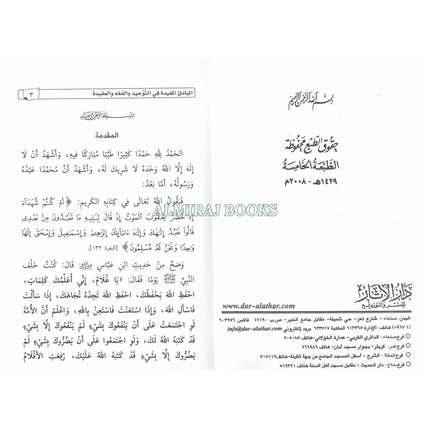 بسم الله الرحمن الرحيم
حقوق الطبع محفوظة
الطبعة الخامسة
١٤٢٩هـ - ٢٠٠٨م
دار الآثار
للنشر والتوزيع
www.dar-alathar.com
المبادئ المفيدة في التوحيد والفقه والعقيدة
٣
بسم الله الرحمن الرحيم
المقدمة
الحَمْدُ لِلَّهِ حَمْدًا كَثِيرًا طَيِّبًا مُبَارَكًا فِيهِ، وَأَشْهَدُ أَنْ لَا
إِلَهَ إِلَّا اللهُ وَحْدَهُ لَا شَرِيكَ لَهُ، وَأَشْهَدُ أَنَّ مُحَمَّدًا عَبْدُهُ
وَرَسُولُهُ، أَمَّا بَعْدُ:
فَيَقُولُ اللهُ تَعَالَى فِي كِتَابِهِ الكَرِيمِ: ﴿أَمْ كُنتُمْ شُهَدَآءَ
إِذْ حَضَرَ يَعْقُوبَ ٱلْمَوْتُ إِذْ قَالَ لِبَنِيهِ مَا تَعْبُدُونَ مِنۢ بَعْدِى
قَالُوا۟ نَعْبُدُ إِلَٰهَكَ وَإِلَٰهَ ءَابَآئِكَ إِبْرَٰهِـۧمَ وَإِسْمَٰعِيلَ وَإِسْحَٰقَ إِلَٰهًا
وَٰحِدًا وَنَحْنُ لَهُۥ مُسْلِمُونَ﴾ [البقرة: ١٣٣].
ALMIRAJ BOOKS
وَصَحَّ مِنْ حَدِيثِ ابْنِ عَبَّاسٍ قَالَ: كُنْتُ خَلْفَ
النَّبِيِّ ﷺ يَوْمًا فَقَالَ: «يَا غُلَامُ، إِنِّي أُعَلِّمُكَ كَلِمَاتٍ،
احْفَظِ اللهَ يَحْفَظْكَ، احْفَظِ اللهَ تَجِدْهُ تُجَاهَكَ، إِذَا سَأَلْتَ
فَاسْأَلِ اللهَ، وَإِذَا اسْتَعَنْتَ فَاسْتَعِنْ بِاللهِ، وَاعْلَمْ أَنَّ الأُمَّةَ
لَوِ اجْتَمَعَتْ عَلَى أَنْ يَنْفَعُوكَ بِشَيْءٍ لَمْ يَنْفَعُوكَ إِلَّا بِشَيْءٍ
قَدْ كَتَبَهُ اللهُ لَكَ، وَلَوِ اجْتَمَعُوا عَلَى أَنْ يَضُرُّوكَ بِشَيْءٍ لَمْ
يَضُرُّوكَ إِلَّا بِشَيْءٍ قَدْ كَتَبَهُ اللهُ عَلَيْكَ، رُفِعَتِ الأَقْلَامُ